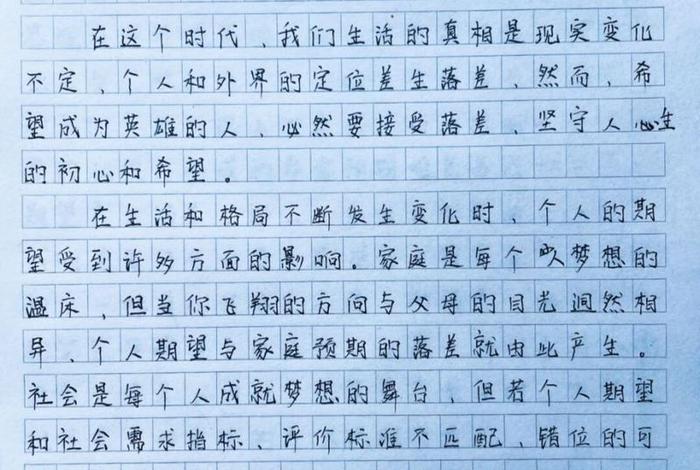 在这个时代，我们生活的真相是现实变化
不定，个人和外界的定位差生落差，然而，希
望成为英雄的人，必然要接受落差，坚守人心生
的初心和希望。
在生活和格局不断发生变化时，个人的期
望受到许多方面的影响。家庭是每个人梦想的
温床，但当你飞翔的方向与父母的目光迥然相
异，个人期望与家庭预期的落差就由此产生。
社会是每个人成就梦想的舞台，但若个人期望
和社会需求指标、评价标准不匹配，错位的可